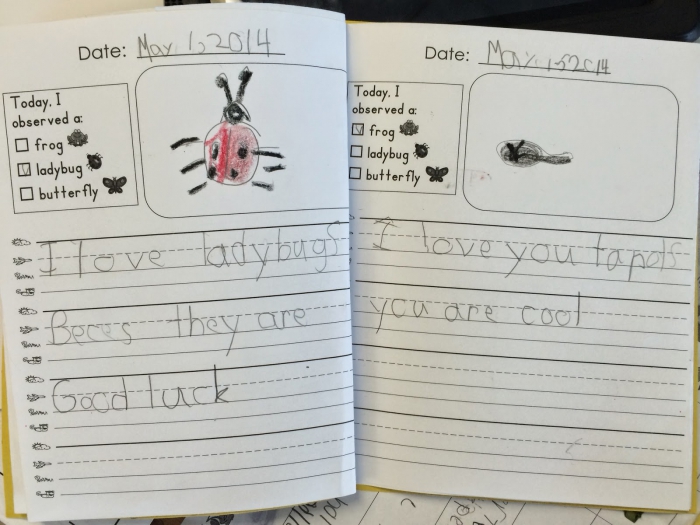 Date: May 1, 2014
Today, I
observed a:
frog
ladybug
butterfly
I love ladybugs
Beces they are
Good luck
Date: May 1, 2014
Today, I
observed a:
frog
ladybug
butterfly
I love you tapols
you are cool